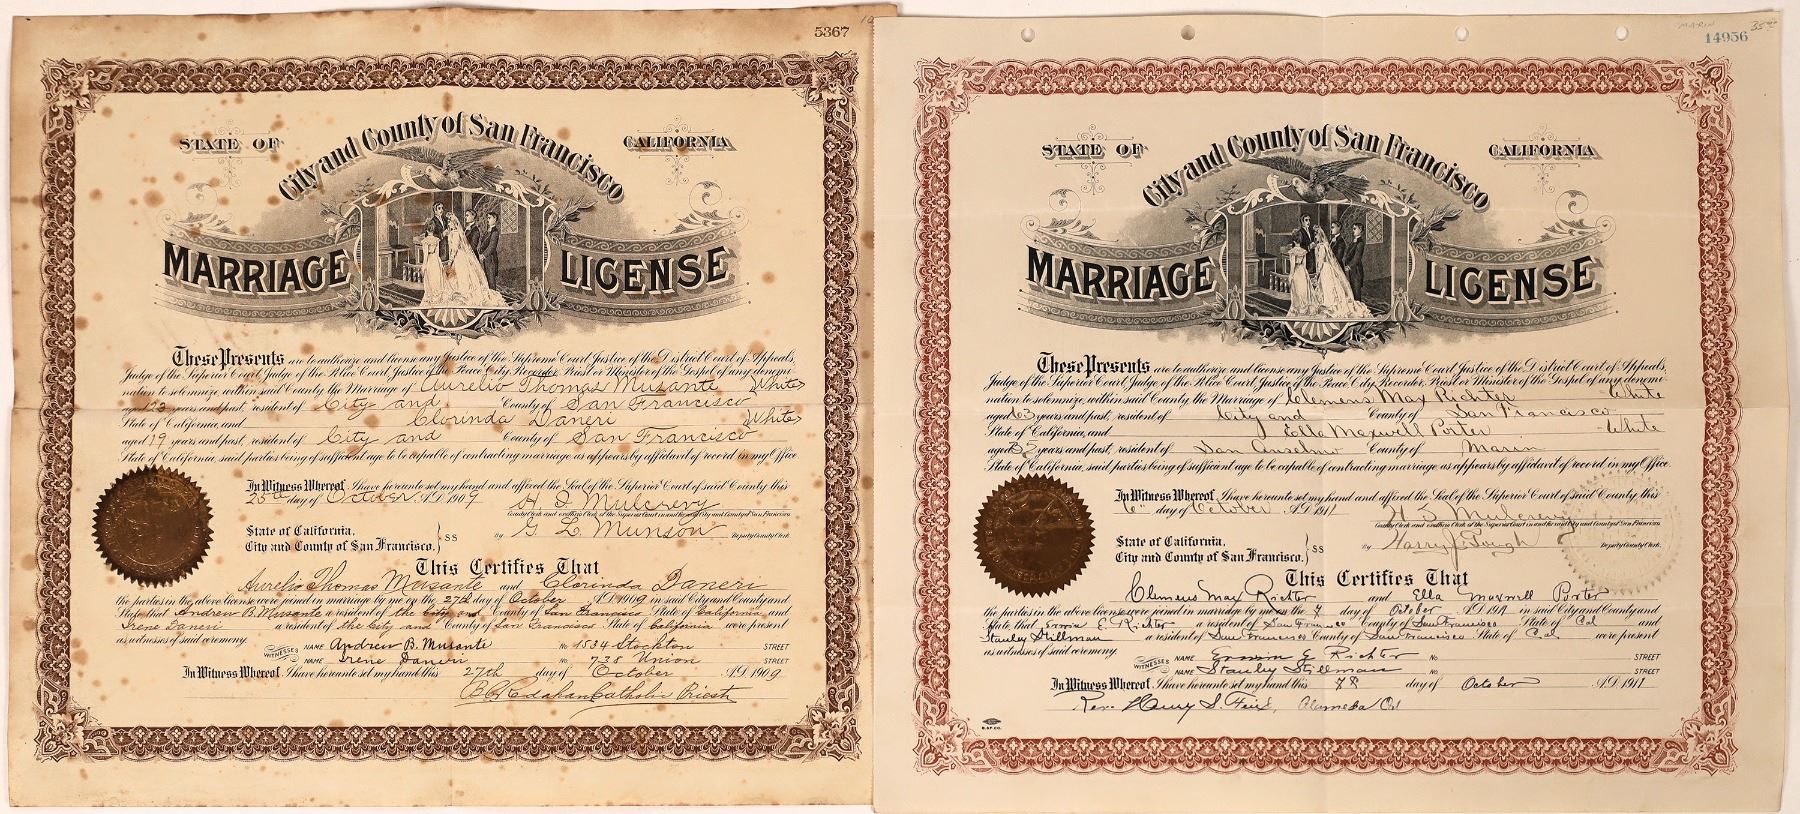 5367
STATE OF
City and County of San Francisco
CALIFORNIA
MARRIAGE LICENSE
These Presents are to authorize and license any Justice of the Supreme Court, Justice of the District Court of Appeals,
Judge of the Superior Court, Judge of the Police Court, Justice of the Peace, City Recorder, Priest or Minister of the Gospel of any denomi-
nation to solemnize, within said County, the Marriage of Aurelio Thomas Musante White
aged 23 years and past, resident of City and County of San Francisco
State of California, and Clorinda Daneri White
aged 19 years and past, resident of City and County of San Francisco
State of California, said parties being of sufficient age to be capable of contracting marriage as appears by affidavit of record in my Office.
In Witness Whereof, I have hereunto set my hand and affixed the Seal of the Superior Court of said County this
25th day of October A.D. 1909 H I Mulcrevy
County Clerk and ex officio Clerk of the Superior Court in and for said City and County of San Francisco
by G. L. Munson Deputy County Clerk.
State of California,
City and County of San Francisco. } SS
This Certifies That
Aurelio Thomas Musante and Clorinda Daneri
the parties in the above license were joined in marriage by me on the 27th day of October A.D. 1909 in said City and County and
State that Andrew B. Musante a resident of the City and County of San Francisco State of California and
Irene Daneri a resident of the City and County of San Francisco State of California were present
as witnesses of said ceremony.
WITNESSES NAME Andrew B. Musante No 1834 Stockton STREET
NAME Irene Daneri No 738 Union STREET
In Witness Whereof I have hereunto set my hand this 27th day of October A.D. 1909
Catholic Priest
MARIN 35.00
14956
STATE OF
City and County of San Francisco
CALIFORNIA
MARRIAGE LICENSE
These Presents are to authorize and license any Justice of the Supreme Court, Justice of the District Court of Appeals,
Judge of the Superior Court, Judge of the Police Court, Justice of the Peace, City Recorder, Priest or Minister of the Gospel of any denomi-
nation to solemnize, within said County, the Marriage of Clemens Max Richter White
aged 63 years and past, resident of City and County of San Francisco
State of California, and Ella Maxwell Porter White
aged years and past, resident of San Anselmo County of Marin
State of California, said parties being of sufficient age to be capable of contracting marriage as appears by affidavit of record in my Office.
In Witness Whereof, I have hereunto set my hand and affixed the Seal of the Superior Court of said County this
6th day of October A.D. 1911 H. I. Mulcrevy
County Clerk and ex officio Clerk of the Superior Court in and for said City and County of San Francisco
By Harry J. Gough Deputy County Clerk.
State of California,
City and County of San Francisco. } SS
This Certifies That
Clemens Max Richter and Ella Maxwell Porter
the parties in the above license were joined in marriage by me on the 7 day of October A.D. 1911 in said City and County and
State that Erwin E. Richter a resident of San Francisco County of San Francisco State of Cal and
Stanley Stillman a resident of San Francisco County of San Francisco State of Cal were present
as witnesses of said ceremony.
WITNESSES NAME Erwin E. Richter No STREET
NAME Stanley Stillman No STREET
In Witness Whereof I have hereunto set my hand this 7th day of October A.D. 1911
Rev. Henry S. Alameda Cal
B.&P.CO.